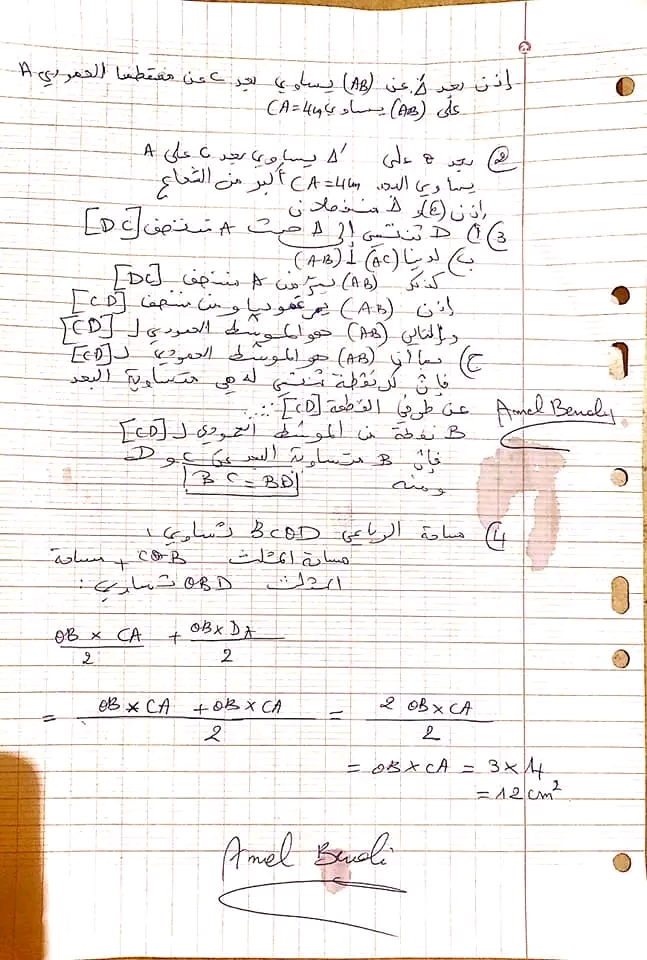 إذن بعد Δ عن (AB) يساوي بعد C عن مسقطها العمودي A
على (AB) يساوي CA=4cm
② بعد B على Δ' يساوي بعد C على A
يساوي البعد CA=4cm أكبر من الشعاع
إذن (C) و Δ منفصلان
3) أ) D تنتمي إلى Δ حيث A منتصف [DC]
ب) لدينا (AC) ⊥ (AB)
كذلك (AB) يمر من A منتصف [DC]
إذن (AB) يمر عموديا ومن منتصف [CD]
وبالتالي (AB) هو الموسّط العمودي لـ [CD]
C) بما أن (AB) هو الموسّط العمودي لـ [CD]
فإن كل نقطة تنتمي له هي متساوية البعد
عن طرفي القطعة [CD]
Amel Benaly
B نقطة من الموسّط العمودي لـ [CD]
فإن B متساوية البعد عن C و D
ومنه BC = BD
4) مساحة الرباعي BCOD تساوي:
مساحة المثلث COB + مساحة
المثلث OBD تساوي:
OB × CA / 2 + OB × DA / 2
= OB × CA + OB × CA / 2 = 2 OB × CA / 2
= OB × CA = 3 × 4
= 12 cm²
Amel Benali